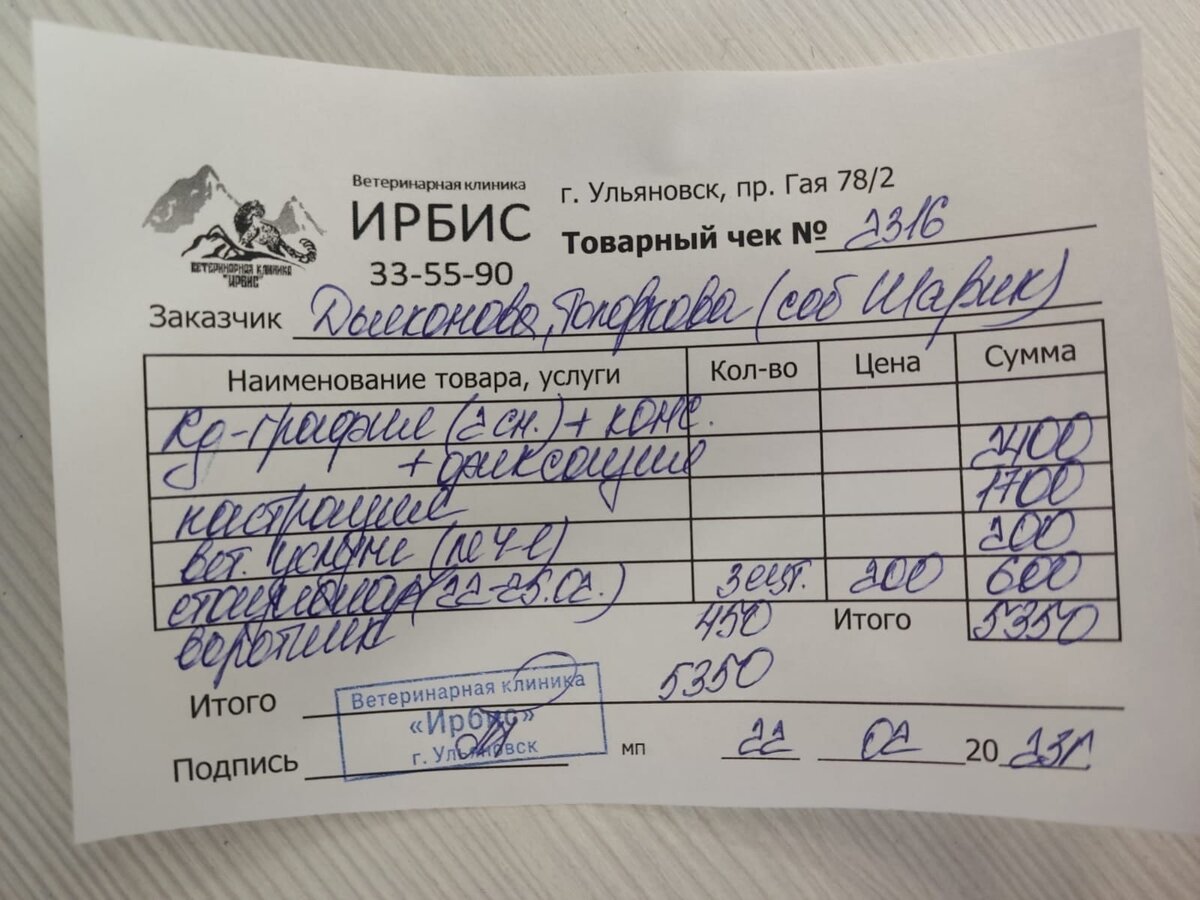 Ветеринарная клиника
ИРБИС
33-55-90
ВЕТЕРИНАРНАЯ КЛИНИКА
"ИРБИС"
г. Ульяновск, пр. Гая 78/2
Товарный чек № 2316
Заказчик (соб Шарик)
Наименование товара, услуги Кол-во Цена Сумма
(2 сн.) + конс.
+ фиксация 2400
кастрация 1700
вет. услуги (леч-е) 200
стационар (22-25.02.) 3 сут. 200 600
воротник 450 Итого 5350
Итого 5350
Ветеринарная клиника
«Ирбис»
г. Ульяновск
Подпись мп 22 02 20 23г